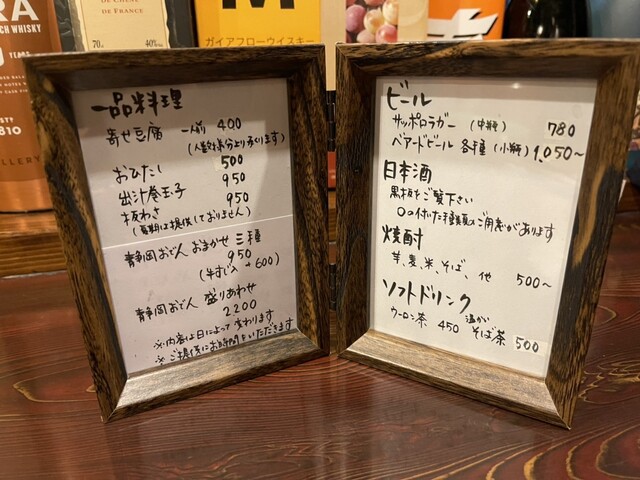 RA
CH WHISKY
810
LLERY
DE CHÊNE
DE FRANCE
70cl 40%
M
ガイアフローウイスキー
一品料理
寄せ豆腐 一人前 400
おひたし 500
出汁巻玉子 950
板わさ 950
(夏期は提供しておりません)
静岡おでん おまかせ 三種
950
(牛すじ入 +600)
静岡おでん 盛りあわせ
2200
※内容は日によって変わります
※ご提供にお時間をいただきます
ビール
サッポロラガー (中瓶) 780
ベアードビール 各種 (小瓶) 1,050~
日本酒
黒板をご覧下さい
○の付いた種類のご用意があります
焼酎
芋、麦、米、そば、他 500~
ソフトドリンク
ウーロン茶 450 温かい そば茶 500